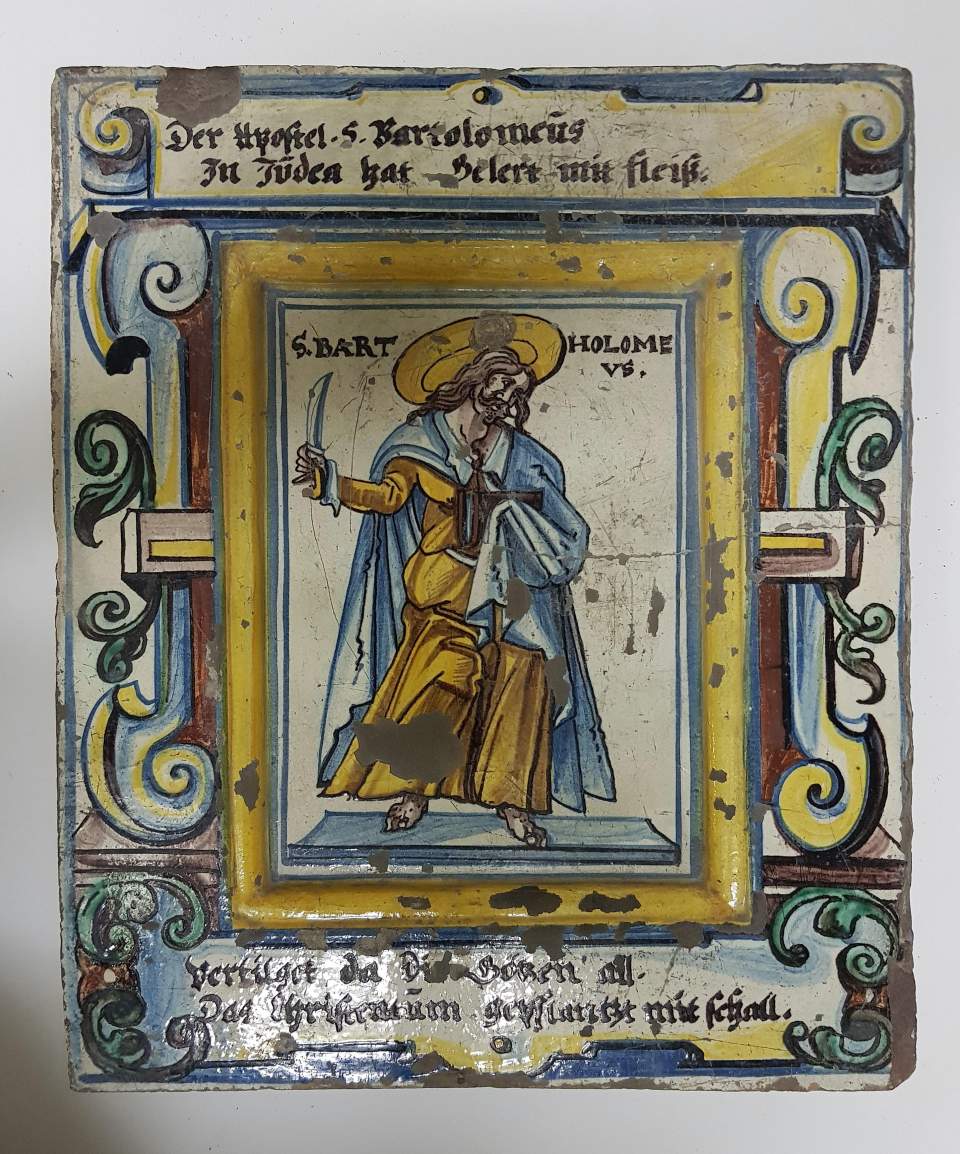 Der Apostel. S. Bartolomeüs
In Jüdea hat Gelert mit fleiß.
S. BART HOLOME
VS.
Vertilget da Die Götzen all.
Das Christentüm gepflantzt mit schall.